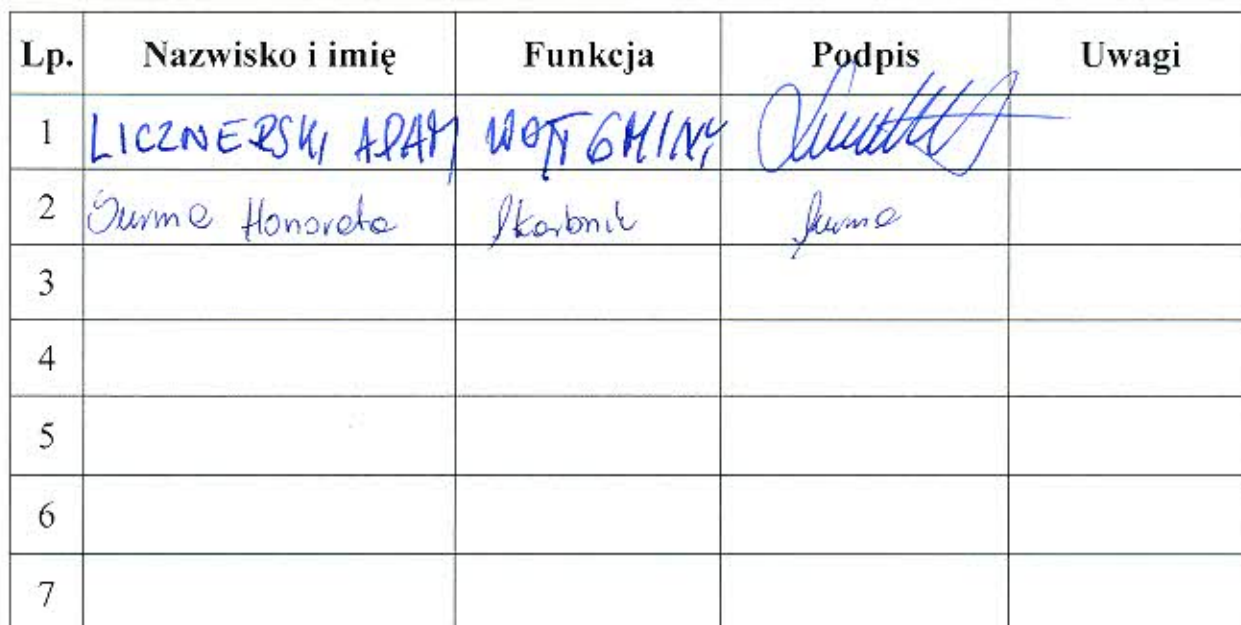 Lp. Nazwisko i imię Funkcja Podpis Uwagi
1 LICZNERSKI ADAM WÓJT GMINY
2 Surma Honorata Skarbnik Surma
3
4
5
6
7